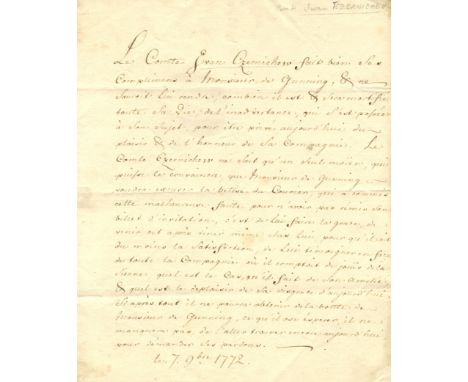 Comte Ivan CZERNICHEW
Le Comte Ivan Czernichew fait bien ses
Complimens à Monsieur de Gunning, & ne
sauroit lui rendre, combien il est & sera mortifié
toute sa vie, de l'inadvertance, qui s'est passée
à son sujet, pour être privé aujourd'hui du
plaisir & de l'honneur de sa Compagnie. Le
Comte Czernichew ne sait qu'un seul moien, qui
puisse le convaincre, que Monsieur de Gunning
voudra excuser la betise du Coureur, qui a commis
cette malheureuse faute pour n'avoir pas remis son
billet d'invitation, c'est de lui faire la grace, de
venir cet après diner même chez lui, pour qu'il ait
du moins la satisfaction, de lui témoigner en face
de toute la Compagnie où il comptait de jouir de la
sienne quel est le cas, qu'il fait de son amitié
& quel est le deplaisir de sa disgrace d'aujourd'hui
Si après tout il ne pourra obtenir de la bonté de
Monsieur de Gunning, ce qu'il ose esperer, il ne
manquera pas de l'aller trouver encore aujourd'hui
pour demander ses pardons.
le 7. 9bre 1772.